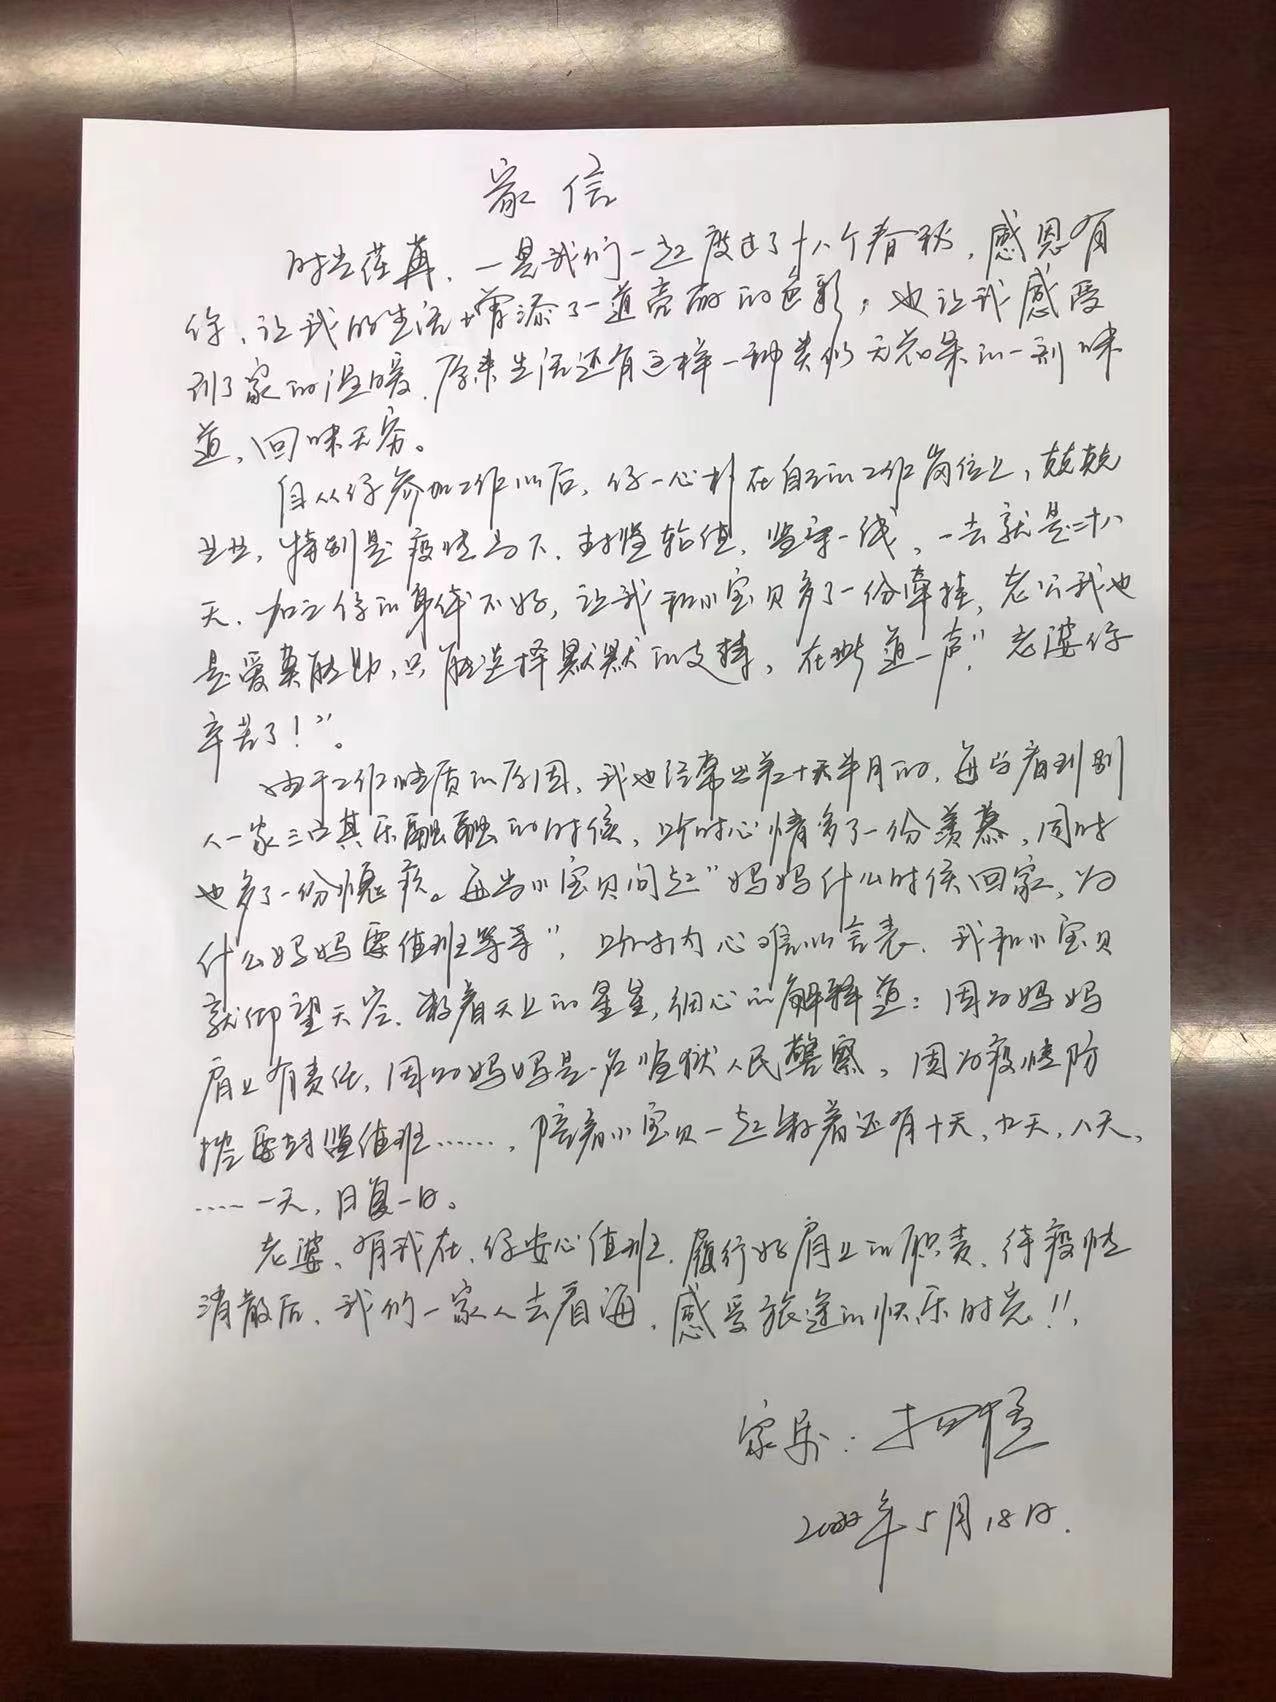 家信
时光荏苒，一晃我们一起度过了十八个春秋，感恩有
你，让我的生活增添了一道亮丽的色彩，也让我感受
到了家的温暖，原来生活还有这样一种类似无花果的一别味
道，回味无穷。
自从你参加工作以后，你一心扑在自己的工作岗位上，兢兢
业业，特别是疫情当下，封监轮值，坚守一线，一去就是二十八
天，加之你的身体不好，让我和小宝贝多了一份牵挂，老公我也
是爱莫能助，只能选择默默的支持，在此道一声"老婆你
辛苦了！"。
由于工作性质的原因，我也经常出差十天半月的，每当看到别
人一家三口其乐融融的时候，此时心情多了一份羡慕，同时
也多了一份愧疚。每当小宝贝问起"妈妈什么时侯回家，为
什么妈妈要值班等等"，此时内心难以言表，我和小宝贝
就仰望天空，数着天上的星星，细心的解释道：因为妈妈
肩上有责任，因为妈妈是一名监狱人民警察，因为疫情防
控要封监值班……，陪着小宝贝一起数着还有十天，九天，八天，
……一天，日复一日。
老婆，有我在，你安心值班，履行好肩上的职责，待疫情
消散后，我们一家人去看海，感受旅途的快乐时光！！
家属：
2022年5月18日.